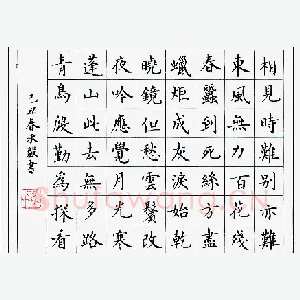 相見時難别亦難
東風無力百花殘
春蠶到死絲方盡
蠟炬成灰淚始乾
曉鏡但愁雲鬢改
夜吟應覺月光寒
蓬山此去無多路
青鳥殷勤為探看
己丑春書